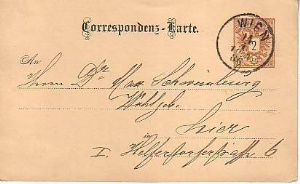 Correspondenz-Karte.
WIEN
An
Herrn Dr Max Schneinberg
Wohlgeb.
hier
I. Helferstorferstraße 6